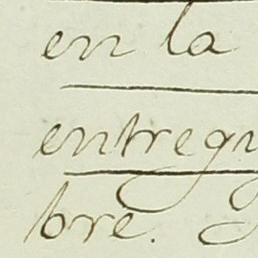 en la
entregu
bre.